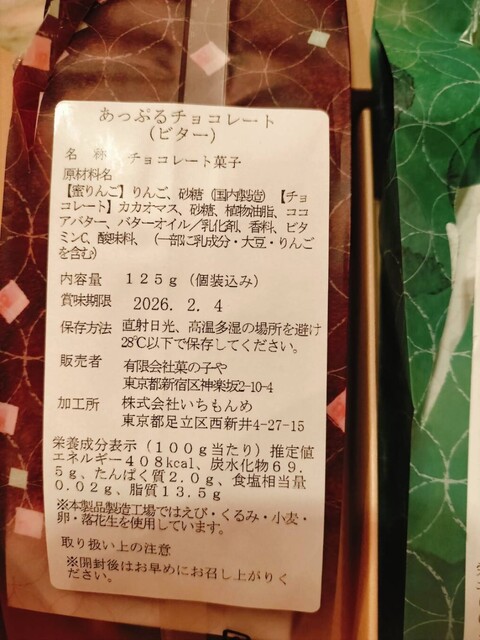 あっぷるチョコレート
(ビター)
名 称 チョコレート菓子
原材料名
【蜜りんご】りんご、砂糖(国内製造)【チョ
コレート】カカオマス、砂糖、植物油脂、ココ
アバター、バターオイル/乳化剤、香料、ビタ
ミンC、酸味料、(一部に乳成分・大豆・りんご
を含む)
内容量 125g(個装込み)
賞味期限 2026. 2. 4
保存方法 直射日光、高温多湿の場所を避け
28℃以下で保存してください。
販売者 有限会社菓の子や
東京都新宿区神楽坂2-10-4
加工所 株式会社いちもんめ
東京都足立区西新井4-27-15
栄養成分表示(100g当たり)推定値
エネルギー408kcal、炭水化物69.
5g、たんぱく質2.0g、食塩相当量
0.02g、脂質13.5g
※本製品製造工場ではえび・くるみ・小麦・
卵・落花生を使用しています。
取り扱い上の注意
※開封後はお早めにお召し上がりく
ださい。